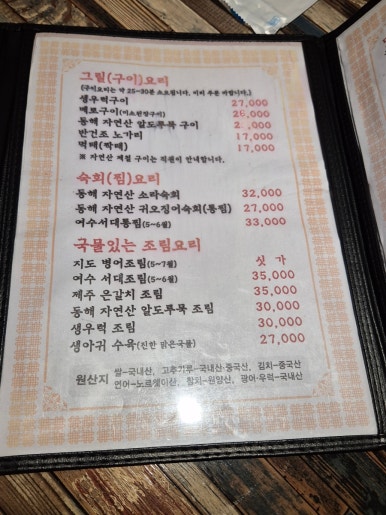 그릴(구이)요리
(구이요리는 약 25~30분 소요됩니다. 미리 주문 바랍니다.)
생우럭구이 27,000
메로구이(미소된장구이)
동해 자연산 알도루묵 구이
반건조 노가리 17,000
먹태(짝태) 17,000
※ 자연산 제철 구이는 직원이 안내합니다.
숙회(찜)요리
동해 자연산 소라숙회 32,000
동해 자연산 귀오징어숙회(통찜) 27,000
여수서대통찜(5~6월) 33,000
국물있는 조림요리
지도 병어조림(5~7월) 싯 가
여수 서대조림(5~6월) 35,000
제주 은갈치 조림 35,000
동해 자연산 알도루묵 조림 30,000
생우럭 조림 30,000
생아귀 수육(진한 맑은국물) 27,000
원산지 쌀-국내산, 고추가루-국내산·중국산, 김치-중국산
연어-노르웨이산, 참치-원양산, 광어·우럭-국내산